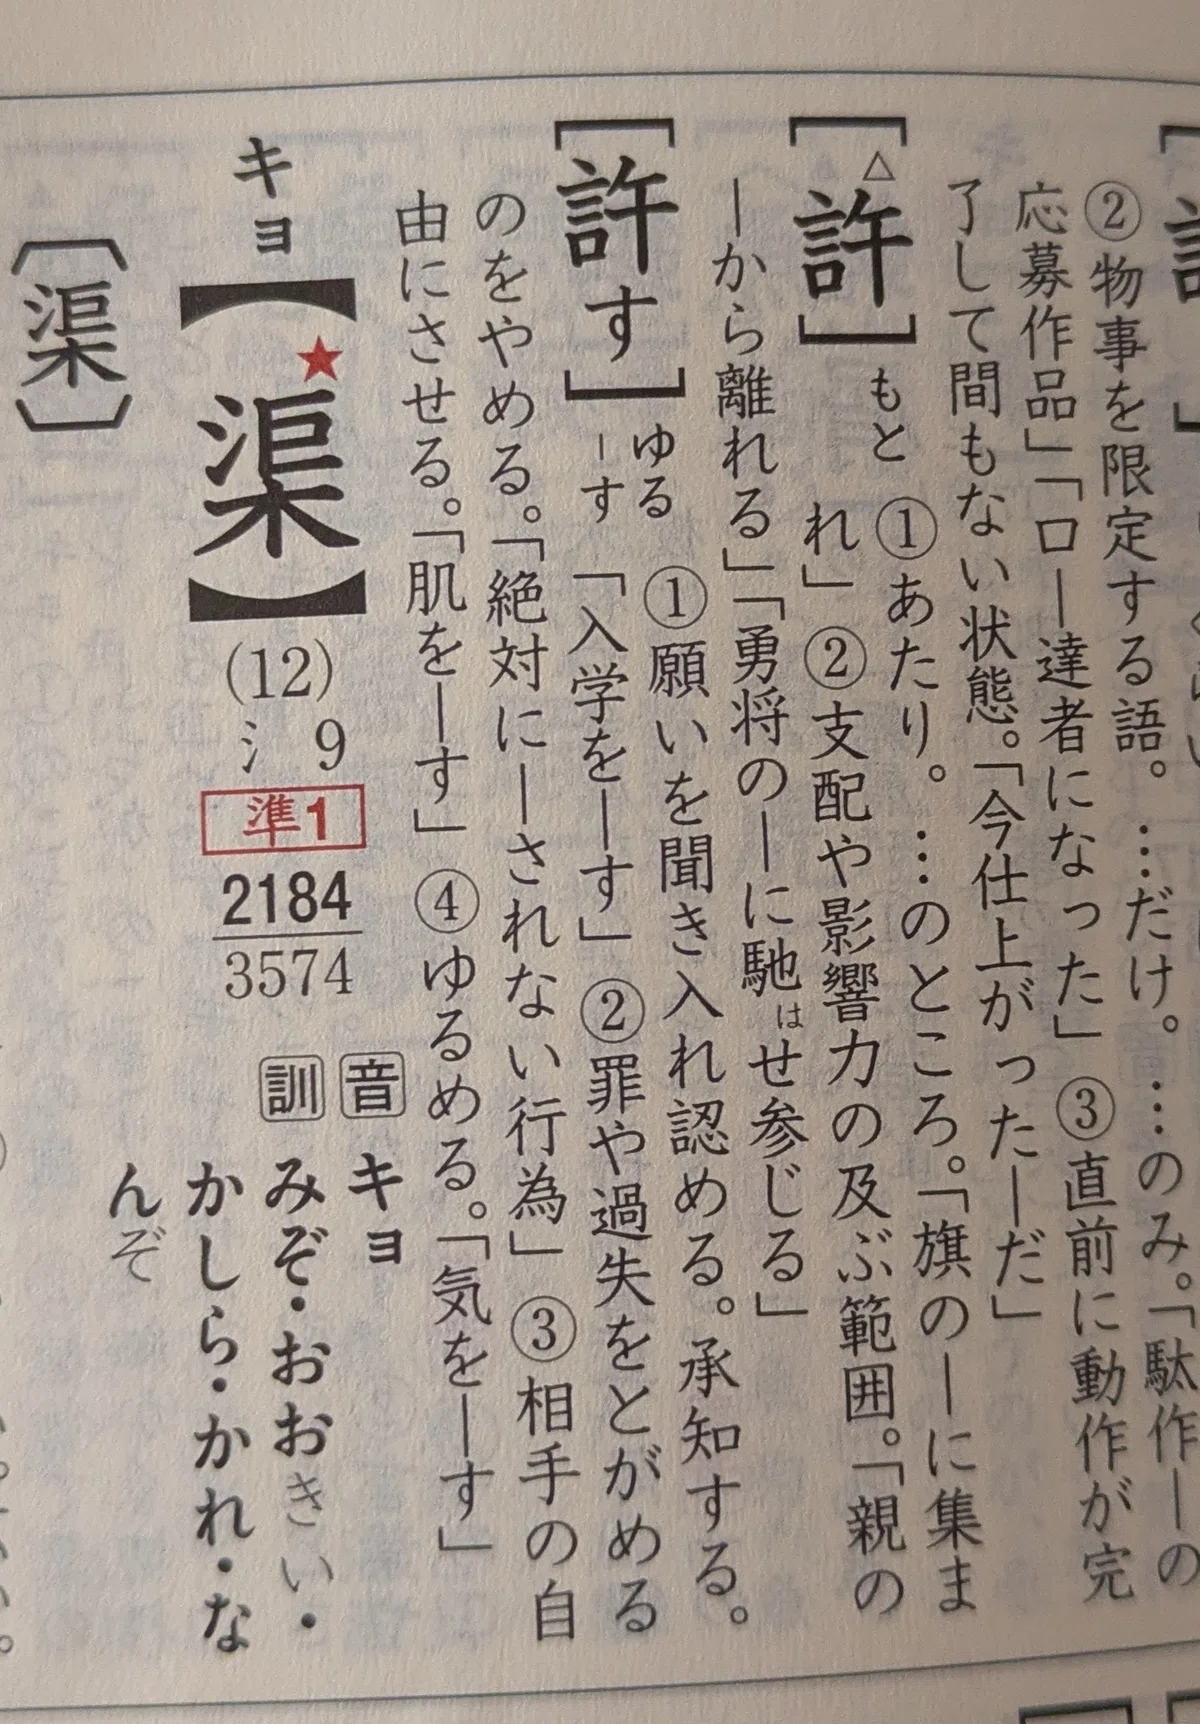 ②物事を限定する語。…だけ。…のみ。「駄作ーの
応募作品」「ロー達者になった」③直前に動作が完
了して間もない状態。「今仕上がったーだ」
[△許]もと ①あたり。…のところ。「旗のーに集ま
れ」②支配や影響力の及ぶ範囲。「親の
ーから離れる」「勇将のーに馳はせ参じる」
[許す]ゆる-す ①願いを聞き入れ認める。承知する。
「入学をーす」②罪や過失をとがめる
のをやめる。「絶対にーされない行為」③相手の自
由にさせる。「肌をーす」④ゆるめる。「気をーす」
キョ【★渠】(12) 氵9 準1 2184 3574
音 キョ
訓 みぞ・おおきい・
かしら・かれ・な
んぞ
〔渠〕